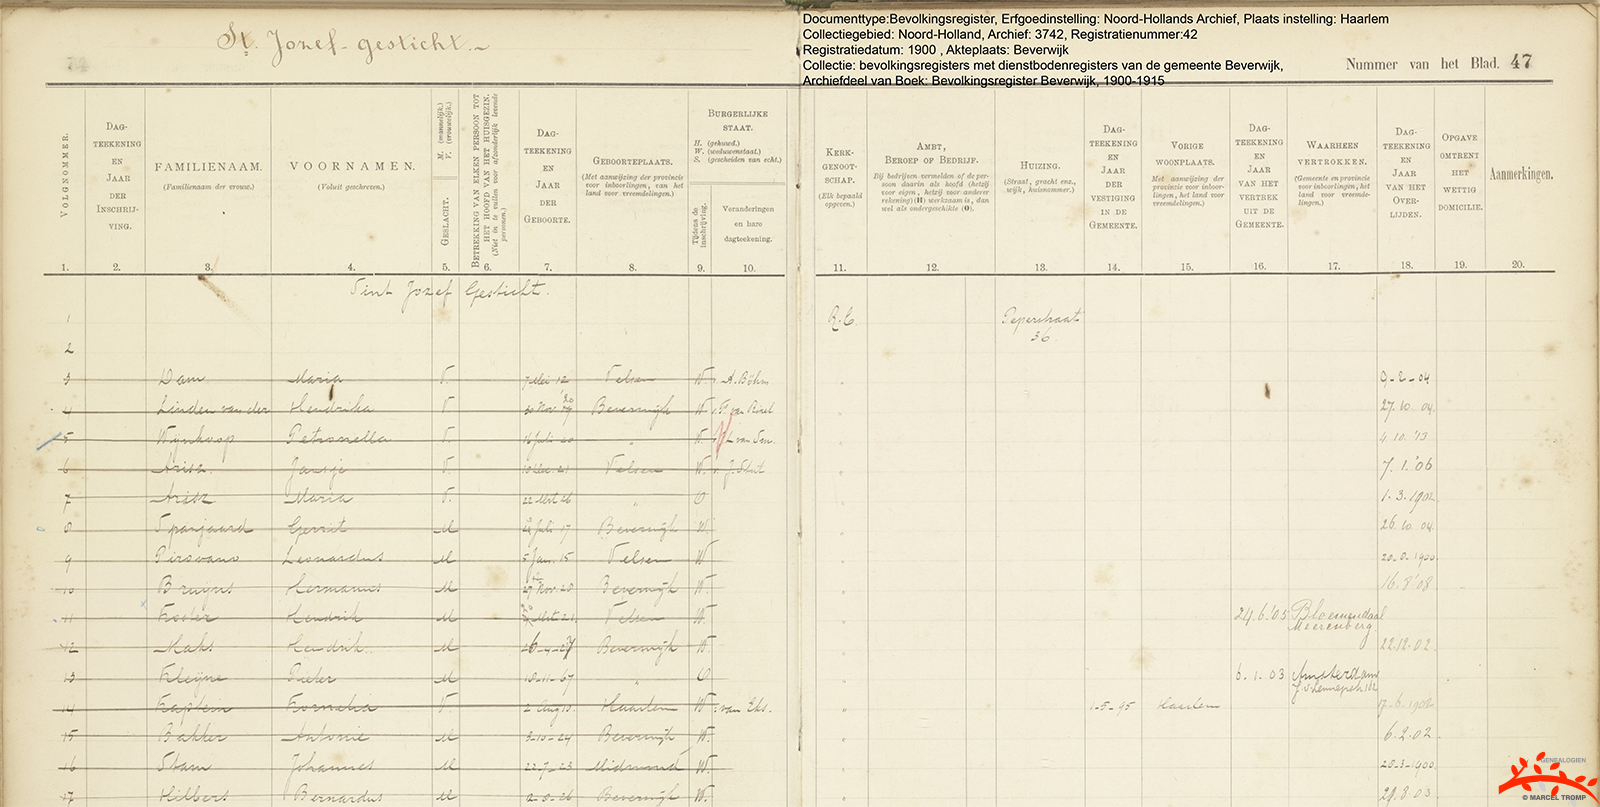 Documenttype:Bevolkingsregister, Erfgoedinstelling: Noord-Hollands Archief, Plaats instelling: Haarlem
Collectiegebied: Noord-Holland, Archief: 3742, Registratienummer:42
Registratiedatum: 1900 , Akteplaats: Beverwijk
Collectie: bevolkingsregisters met dienstbodenregisters van de gemeente Beverwijk,
Archiefdeel van Boek: Bevolkingsregister Beverwijk, 1900-1915
St. Jozef-gesticht.
Nummer van het Blad. 47
VOLGNOMMER.
DAG-
TEEKENING
EN
JAAR
DER
INSCHRIJ-
VING.
FAMILIENAAM.
(Familienaam der vrouw.)
VOORNAMEN.
(Voluit geschreven.)
GESLACHT. M. (mannelijk.)
V. (vrouwelijk.)
BETREKKING VAN ELKEN PERSOON TOT
HET HOOFD VAN HET HUISGEZIN.
(Niet in te vullen voor afzonderlijk levende
personen.)
DAG-
TEEKENING
EN
JAAR
DER
GEBOORTE.
GEBOORTEPLAATS.
(Met aanwijzing der provincie
voor inboorlingen, van het
land voor vreemdelingen.)
BURGERLIJKE
STAAT.
H. (gehuwd.)
W. (weduwenstaat.)
S. (gescheiden van echt.)
Tijdens de
inschrijving.
Veranderingen
en hare
dagteekening.
KERK-
GENOOT-
SCHAP.
(Elk bepaald
opgeven.)
AMBT,
BEROEP OF BEDRIJF.
Bij bedrijven vermelden of de per-
soon daarin als hoofd (hetzij
voor eigen, hetzij voor anderer
rekening) (H) werkzaam is, dan
wel als ondergeschikte (O).
HUIZING.
(Straat, gracht enz.,
wijk, huisnummer.)
DAG-
TEEKENING
EN
JAAR
DER
VESTIGING
IN DE
GEMEENTE.
VORIGE
WOONPLAATS.
Met aanwijzing der
provincie voor inboor-
lingen, het land voor
vreemdelingen.)
DAG-
TEEKENING
EN
JAAR
VAN HET
VERTREK
UIT DE
GEMEENTE.
WAARHEEN
VERTROKKEN.
(Gemeente en provincie
voor inboorlingen, het
land voor vreemde-
lingen.)
DAG-
TEEKENING
EN
JAAR
VAN HET
OVER-
LIJDEN.
OPGAVE
OMTRENT
HET
WETTIG
DOMICILIE.
Aanmerkingen.
1. 2. 3. 4. 5. 6. 7. 8. 9. 10. 11. 12. 13. 14. 15. 16. 17. 18. 19. 20.
Sint Jozef Gesticht.
1 R.C. Peperstraat
36
2
3 Dam Maria V. 7 Mei 12 Velsen W. A. Böhm 9-2-04
4 Linden van der Hendrika V. Beverwijk W. 27.10 04.
5 Wijnkoop Petronella V. 16 Juli 20 " W. 4.10.'13
6 Jansje V. Velsen W. 7.1.'06
7 Maria V. 22 Mrt 26 " O 1.3.1902
8 Spanjaard Gerrit M Juli 17 Beverwijk W. 26.10 04
9 Leonardus M 5 Jan. 15 Velsen W 1900
10 Bruijns Hermanus M Nov. 20 Beverwijk W. 16.8'08
11 Koster Hendrik M Velsen W. 24.6.'05 Bloemendaal
Meerenberg
12 Hendrik M Beverwijk W. 22.12.02.
13 Kleijne Pieter M 18-11-67 " O 6.1.03 Amsterdam
14 Kornelia V. 2 Aug Haarlem W. 1-5-95 Haarlem
15 Bakker Antonie M 3-10-24 Beverwijk W. 6.2.02
16 Stam Johannes M 22-7-23 W. 1900.
17 Hilbers Bernardus M W. 8.03
GENEALOGIEN
© MARCEL TROMP